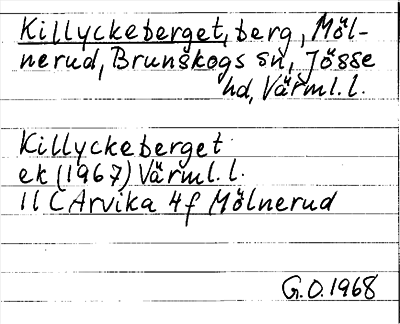 Killyckeberget, berg, Möl-
nerud, Brunskogs sn, Jösse
hd, Värml. l.
Killyckeberget
ek (1967) Värml. l.
11 C Arvika 4f Mölnerud
G.O. 1968